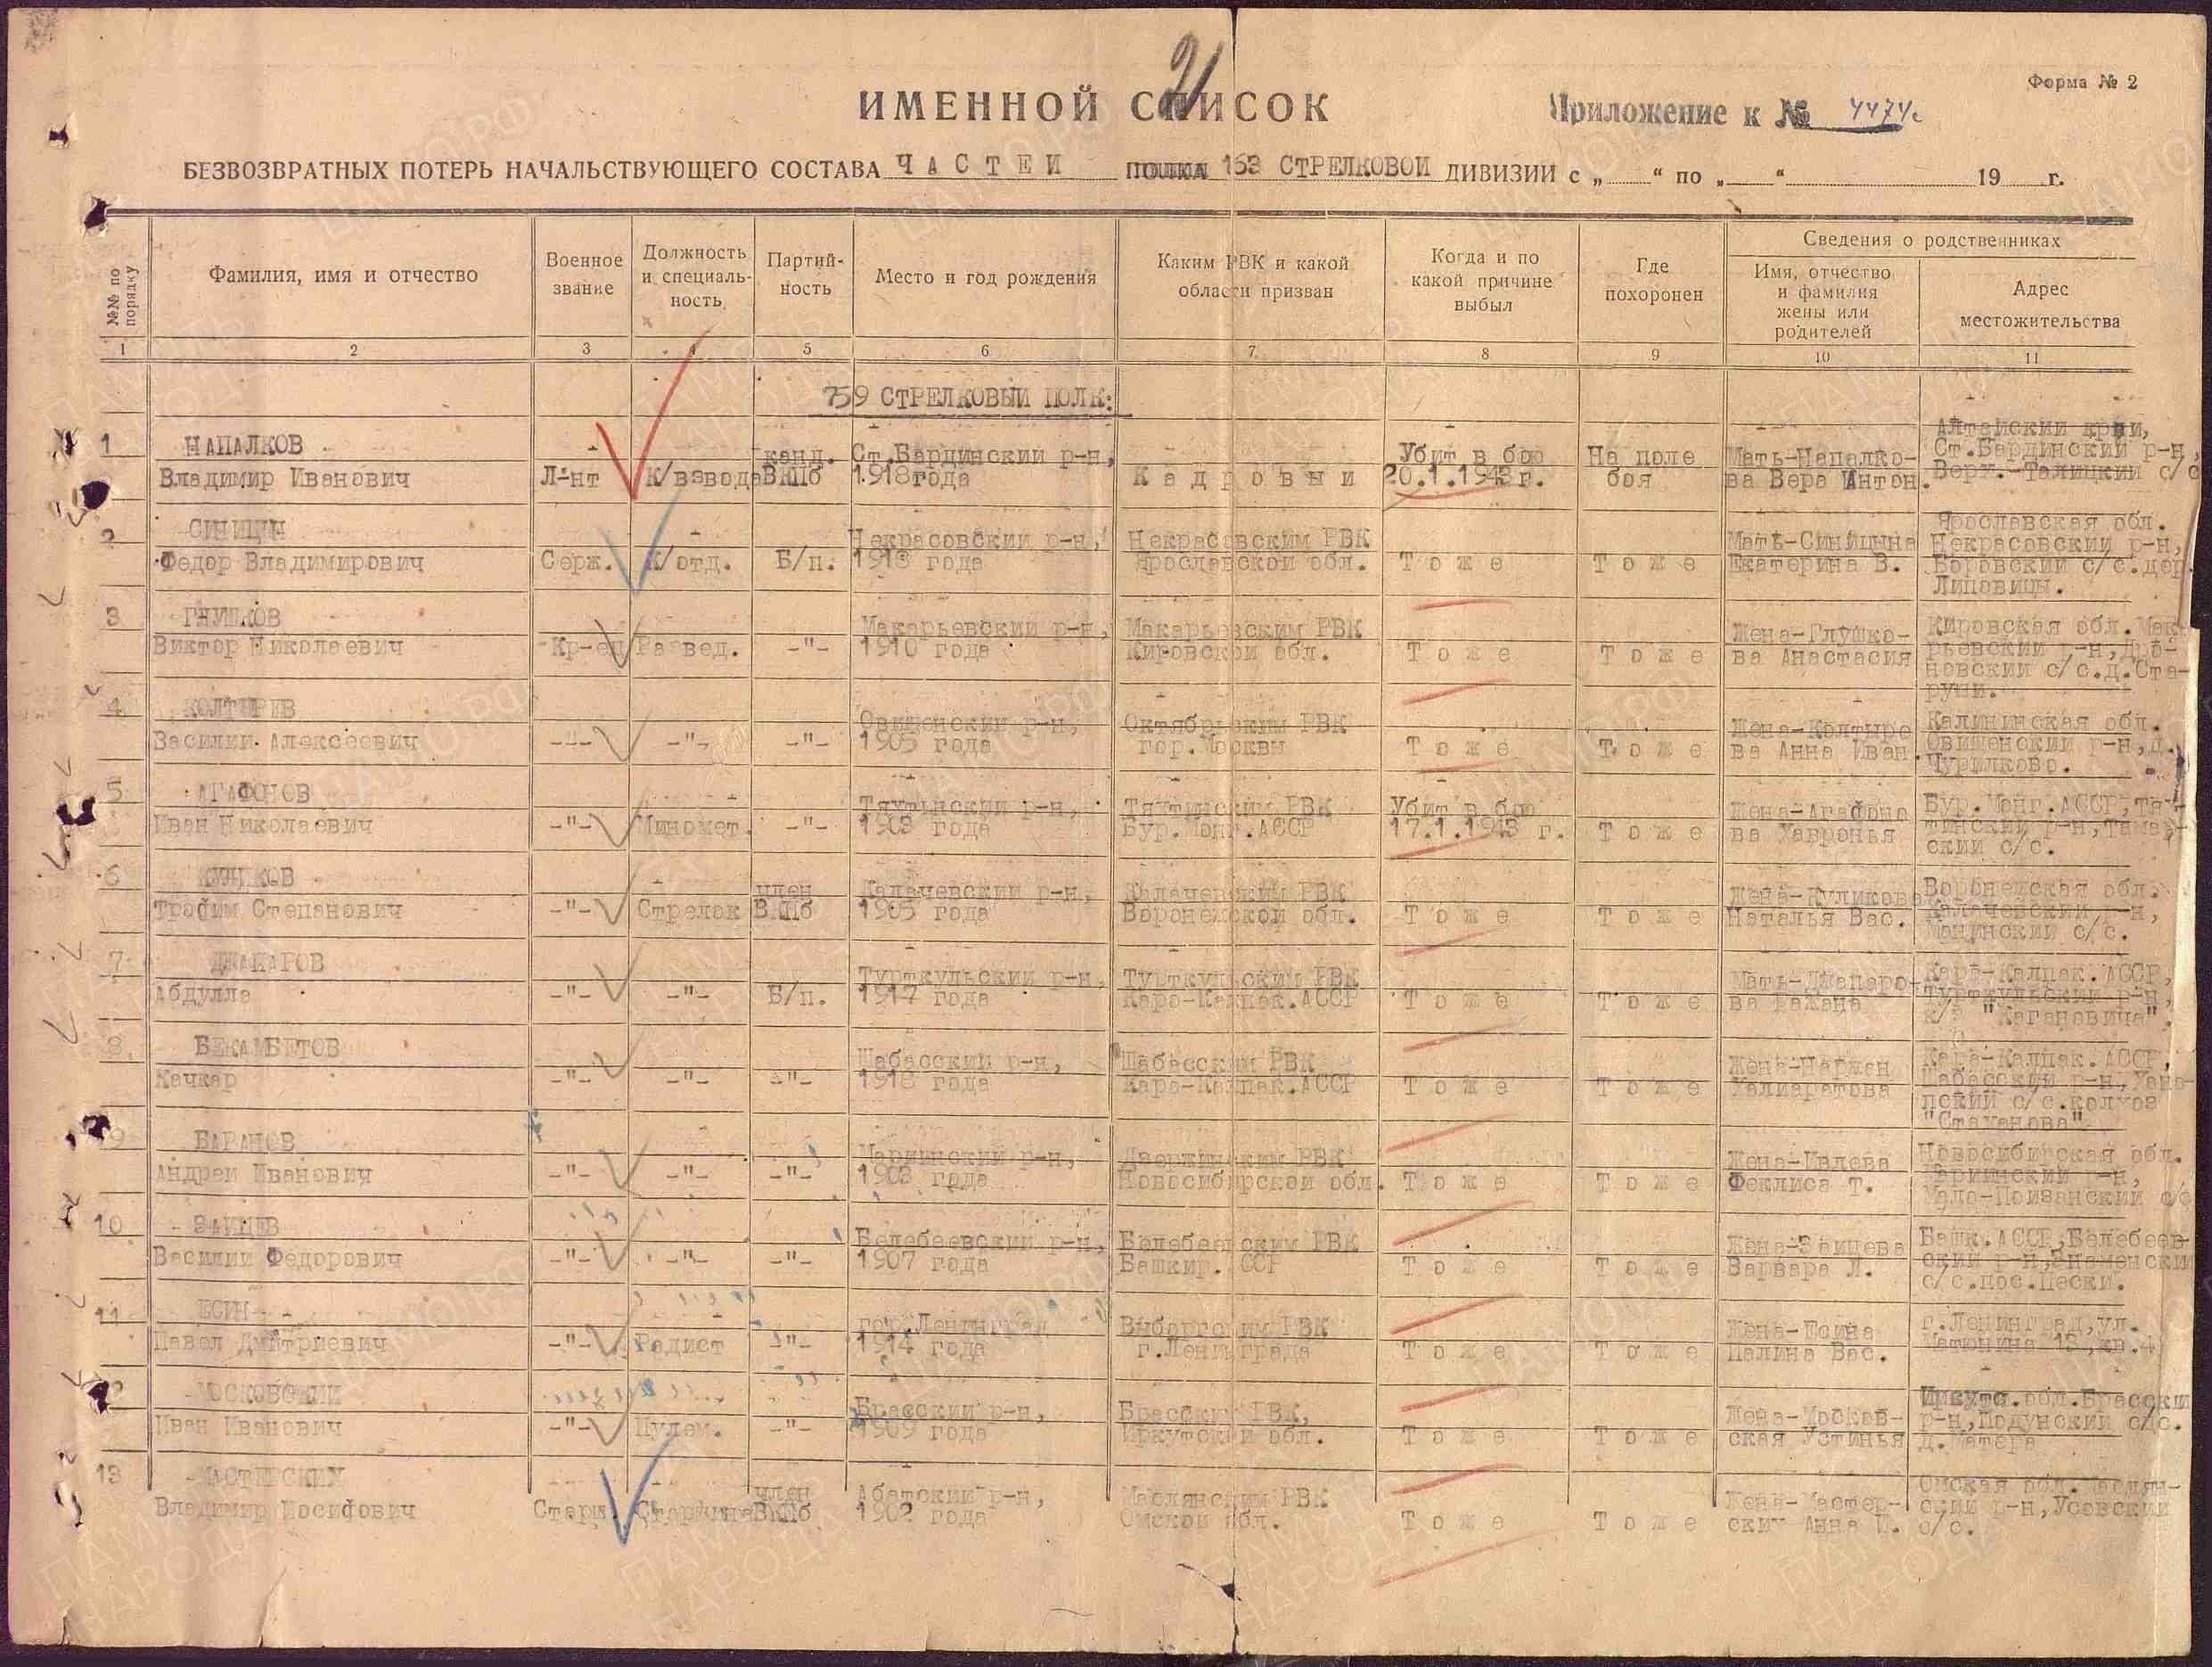 21
Форма № 2
ИМЕННОЙ СПИСОК
Приложение к № 4474с
БЕЗВОЗВРАТНЫХ ПОТЕРЬ НАЧАЛЬСТВУЮЩЕГО СОСТАВА ЧАСТЕЙ ПОЛКА 163 СТРЕЛКОВОЙ ДИВИЗИИ с „ “ по „ “ 19 г.
№№ по порядку
Фамилия, имя и отчество
Военное звание
Должность и специальность
Партийность
Место и год рождения
Каким РВК и какой области призван
Когда и по какой причине выбыл
Где похоронен
Сведения о родственниках
Имя, отчество и фамилия жены или родителей
Адрес местожительства
1 2 3 4 5 6 7 8 9 10 11
759 СТРЕЛКОВЫЙ ПОЛК:
1 НАПАЛКОВ
Владимир Иванович Л-нт К/взвода канд. ВКПб Ст.Бардинский р-н, 1918 года Кадровый Убит в бою 20.1.1943 г. На поле боя Мать-Напалкова Вера Антон. Алтайский край, Ст.Бардинский р-н, Верх.-Талицкий с/с
2 СИНИЦЫН
Федор Владимирович Серж. К/отд. Б/п. Некрасовский р-н, 1918 года Некрасовским РВК Ярославской обл. Тоже Тоже Мать-Синицына Екатерина В. Ярославская обл. Некрасовский р-н, Боровский с/с.дер. Липовицы.
3 ГЛУШКОВ
Виктор Николаевич Кр-ец Развед. -"- Макарьевский р-н, 1910 года Макарьевским РВК Кировской обл. Тоже Тоже Жена-Глушкова Анастасия Кировская обл. Макарьевский р-н, с/с.д.Старуни.
4 КОЛТЫРЕВ
Василий Алексеевич -"- -"- -"- Овишенский р-н, 1905 года Октябрьским РВК гор.Москвы Тоже Тоже Жена-Колтырева Анна Иван. Калининская обл. Овишенский р-н,д. Чурилково.
5 АГАФОНОВ
Иван Николаевич -"- Миномет. -"- Тяхтинский р-н, 1903 года Тяхтинским РВК Бур.Монг.АССР Убит в бою 17.1.1943 г. Тоже Жена-Агафонова Хавронья Бур.Монг.АССР, р-н, с/с.
6 КУЛИКОВ
Трофим Степанович -"- Стрелок член ВКПб Калачевский р-н, 1905 года Калачевским РВК Воронежской обл. Тоже Тоже Жена-Куликова Наталья Вас. Воронежская обл. Калачевский р-н, Манинский с/с.
7 ДЖАПАРОВ
Абдулла -"- -"- Б/п. Турткульский р-н, 1917 года Турткульским РВК Каро-Калпак.АССР Тоже Тоже Мать-Джапарова Кара-Калпак.АССР, Турткульский р-н, к/з "Кагановича".
8 БЕКАМБЕТОВ
Качкар -"- -"- -"- Шабасский р-н, 1918 года Шабасским РВК Каро-Калпак.АССР Тоже Тоже Жена-Наржан Халмаратова Кара-Калпак.АССР, Шабасский р-н, с/с.колхоз "Стаханова"
9 БАРАНОВ
Андрей Иванович -"- -"- -"- р-н, 1903 года Дзержинским РВК Новосибирской обл. Тоже Тоже Жена-Ивлева Феклиса Т. Новосибирская обл. р-н, с/с
10 ЗАЙЦЕВ
Василий Федорович -"- -"- -"- Белебеевский р-н, 1907 года Белебеевским РВК Башкир. ССР Тоже Тоже Жена-Зайцева Варвара Л. Башк.АССР,Белебеевский р-н,Знаменский с/с.пос.Пески.
11 ЕСИН
Павел Дмитриевич -"- Радист -"- гор.Ленинград 1914 года Выборгским РВК г.Ленинграда Тоже Тоже Жена-Есина Галина Вас. г.Ленинград,ул. 13,кв.4
12 МОСКОВСКИЙ
Иван Иванович -"- Пулем. -"- Брасский р-н, 1909 года Брасским РВК, Иркутской обл. Тоже Тоже Жена-Московская Устинья Иркутс.обл.Брасский р-н,Подунский с/с. д.Матера
13 МАСТЕРСКИХ
Владимир Иосифович Старш. Старшина член ВКПб Абатский р-н, 1902 года Маслянским РВК Омской обл. Тоже Тоже Жена-Мастерских Анна И. Омская обл.Маслянский р-н,Усовский с/с.